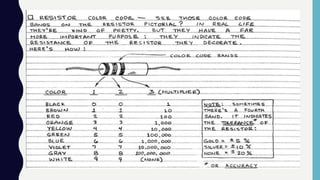 RESISTOR COLOR CODE — SEE THOSE COLOR CODE
BANDS ON THE RESISTOR PICTORIAL? IN REAL LIFE
THEY'RE KIND OF PRETTY. BUT THEY HAVE A FAR
MORE IMPORTANT PURPOSE: THEY INDICATE THE
RESISTANCE OF THE RESISTOR THEY DECORATE.
HERE'S HOW:
COLOR CODE BANDS
COLOR 1 2 3 (MULTIPLIER)
BLACK 0 0 1
BROWN 1 1 10
RED 2 2 100
ORANGE 3 3 1,000
YELLOW 4 4 10,000
GREEN 5 5 100,000
BLUE 6 6 1,000,000
VIOLET 7 7 10,000,000
GRAY 8 8 100,000,000
WHITE 9 9 (NONE)
NOTE: SOMETIMES
THERE'S A FOURTH
BAND. IT INDICATES
THE TOLERANCE* OF
THE RESISTOR:
GOLD = ± 5 %
SILVER = ± 10 %
NONE = ± 20 %
* OR ACCURACY